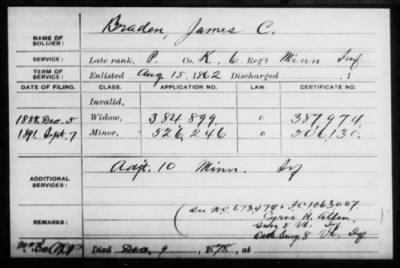 NAME OF SOLDIER: Braden, James C.
SERVICE: Late rank, P. Co. K, 6 Reg't Minn Inf
TERM OF SERVICE: Enlisted Aug 15, 1862 Discharged , 1
DATE OF FILING. CLASS. APPLICATION NO. LAW. CERTIFICATE NO.
Invalid,
1888 Dec. 5 Widow, 384 899 o 387974
1891 Sept. 7 Minor, 526,246 o 306,130.
ADDITIONAL SERVICES: Adjt. 10 Minn. Inf
REMARKS: 673474 + XC1063007.
Cyrus H. Allen
5 Vt. Inf
8 Vt. Inf
Died Dec. 9, 1878, at